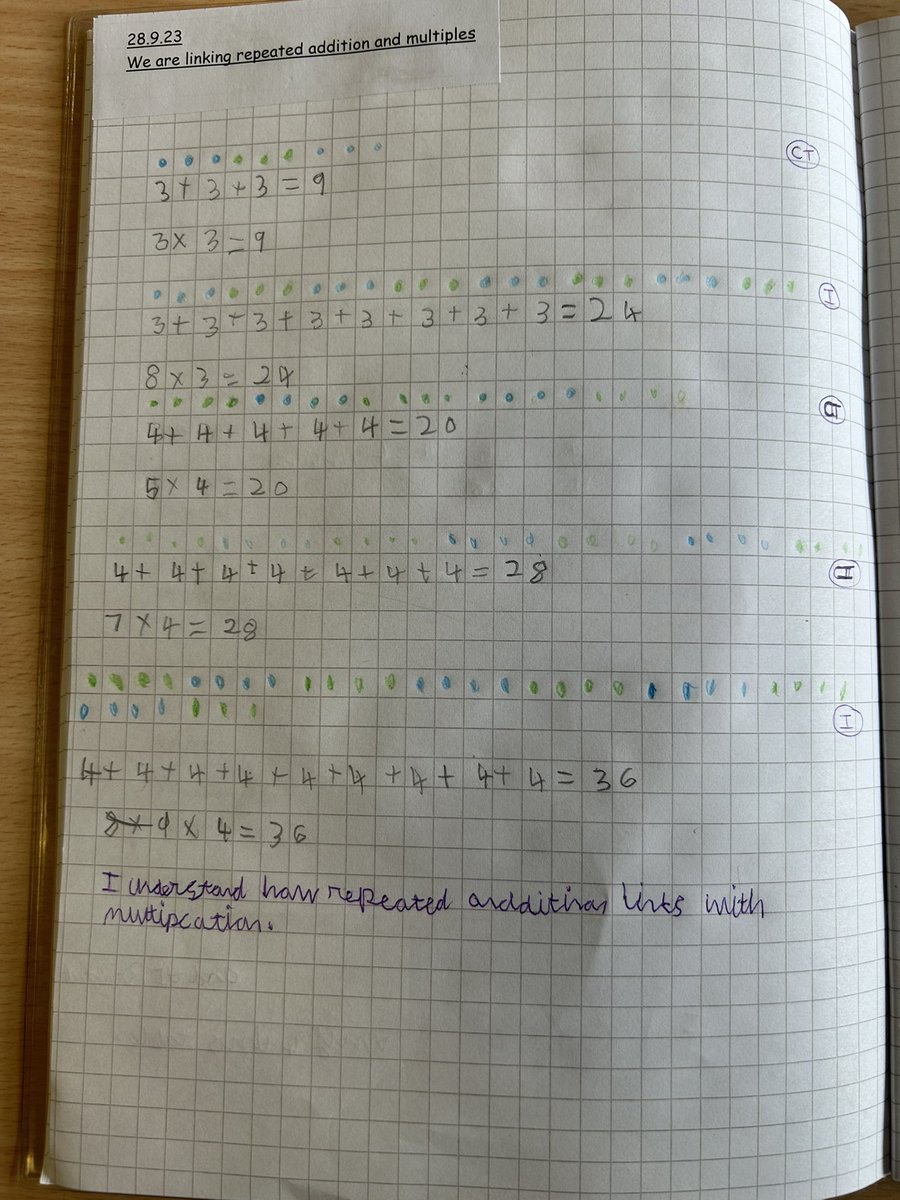 28.9.23
We are linking repeated addition and multiples
CT
3 + 3 + 3 = 9
3 × 3 = 9
I
3 + 3 + 3 + 3 + 3 + 3 + 3 + 3 = 24
8 × 3 = 24
4 + 4 + 4 + 4 + 4 = 20
5 × 4 = 20
4 + 4 + 4 + 4 + 4 + 4 + 4 = 28
I
7 × 4 = 28
I
4 + 4 + 4 + 4 + 4 + 4 + 4 + 4 + 4 = 36
9 × 4 = 36
I understand how repeated addition links with
multipcation.